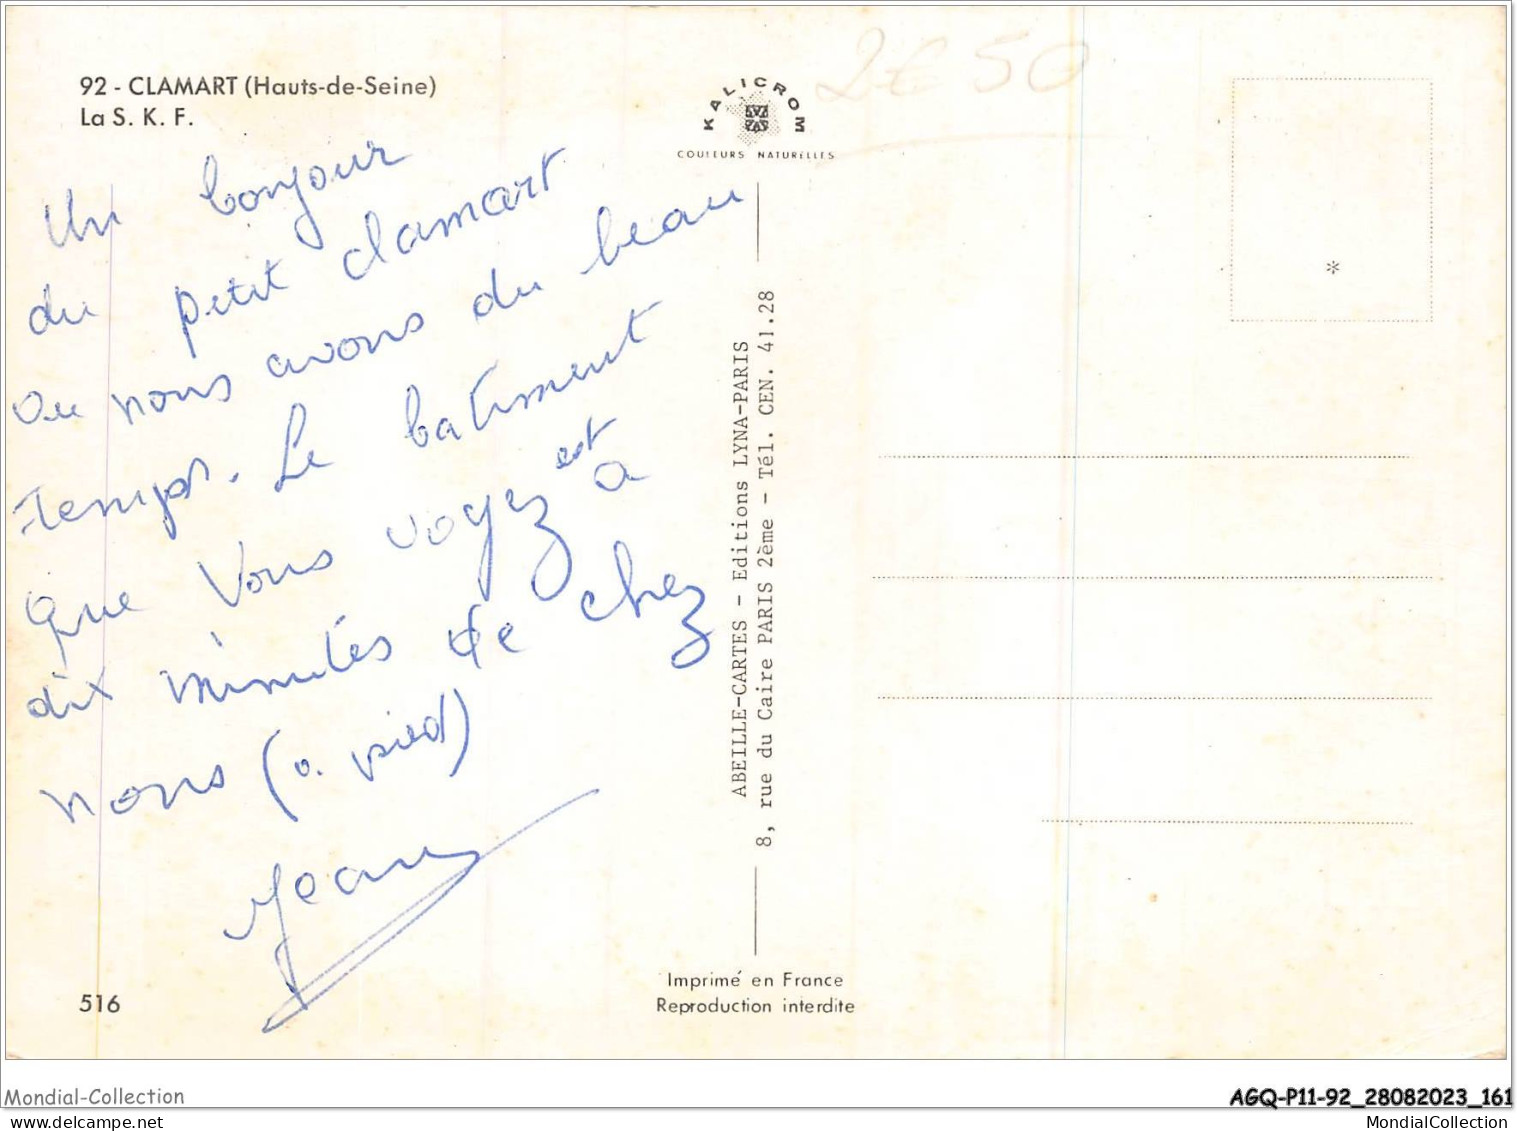 92 - CLAMART (Hauts-de-Seine)
La S. K. F.
KALICROM
COULEURS NATURELLES
2€50
Un bonjour
du petit clamart
ou nous avons du beau
temps. Le batiment
que vous voyez est à
dix minutes de chez
nous (a pied)
Jean
ABEILLE-CARTES - Editions LYNA-PARIS
8, rue du Caire PARIS 2ème - Tél. CEN. 41.28
*
Imprimé en France
Reproduction interdite
516
Mondial-Collection
AGQ-P11-92_28082023_161
MondialCollection